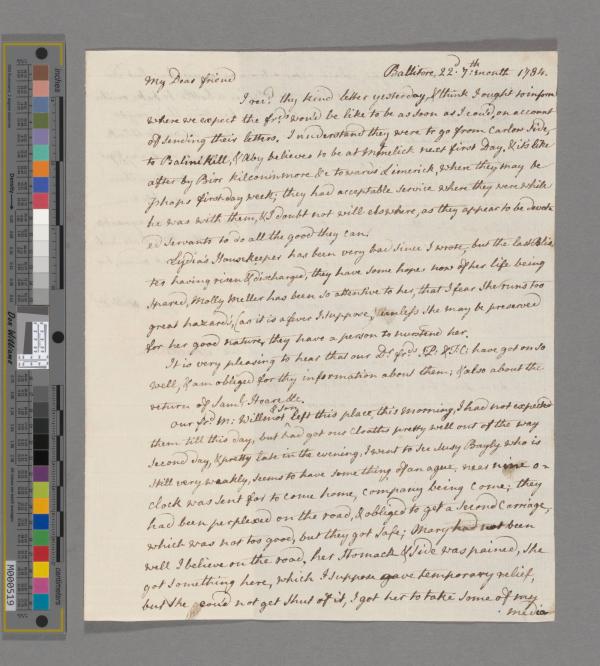 Ballitore, 22d. 7th: month 1784.
My Dear friend
I recd. thy kind letter yesterday, & think I ought to inform
where we expect the frds. would be like to be as soon as I could, on account
of sending their letters. I understand they were to go from Carlow side,
to Balinikill, & Aby believes to be at Montelick next first Day, & its like
after by Birr kilconinmore &c towards Limerick, where they may be
phaps first day week; they had acceptable service where they were while
he was with them, & I doubt not will elswhere, as they appear to be devote
ed servants to do all the good they can.
Lydia's Housekeeper has been very bad since I wrote, but the last Blis
ter having risen & discharged, they have some hopes now of her life being
spared, Molly Weller has been so attentive to her, that I fear She runs too
great hazards, (as it is a fever I suppose,) unless She may be preserved
for her good nature, they have a person to nurstend her.
It is very pleasing to hear that our Dr. frds. P: & F:C: have got on so
well, & am obliged for thy information about them; & also about the
return of Saml. Hoare &c.
our frd. M: Willmot & Son left this place, this morning, I had not expected
them till this day, but had got our Cloaths pretty well out of the way
second day, & pretty late in the evening, I went to see Susy Bayly who is
still very weakly, seems to have something of an ague, near nine o
clock was sent for to come home, company being come; they
had been perplexed on the road, & obliged to get a second Carriage,
which was not too good, but they got safe; Mary had not been
well I believe on the road. her Stomack & Side was pained, She
got something here, which I suppose gave temporary relief,
but She could not get Shut of it, I got her to take some of my
media
inches
centimeters
Density
Don Williams
M000519